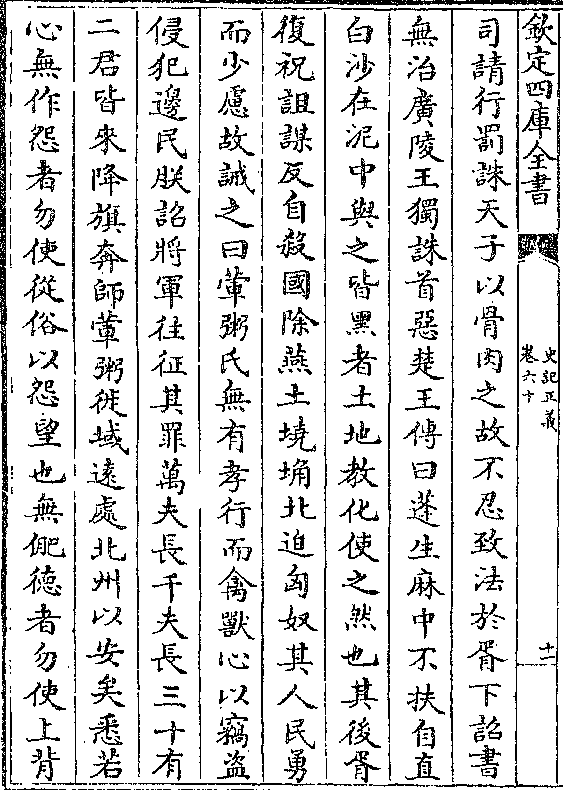 欽定四庫全書
史記正義
卷六十
十一
司請行罰誅天子以骨肉之故不忍致法於胥下詔書
無治廣陵王獨誅首惡楚王傳曰蓬生麻中不扶自直
白沙在泥中與之皆黑者土地教化使之然也其後胥
復祝詛謀反自殺國除燕土墝埆北迫匈奴其人民勇
而少慮故誡之曰葷粥氏無有孝行而禽獸心以竊盗
侵犯邊民朕詔將軍往征其罪萬夫長千夫長三十有
二君皆來降旗奔師葷粥徙域遠處北州以安矣悉若
心無作怨者勿使從俗以怨望也無俷德者勿使上背